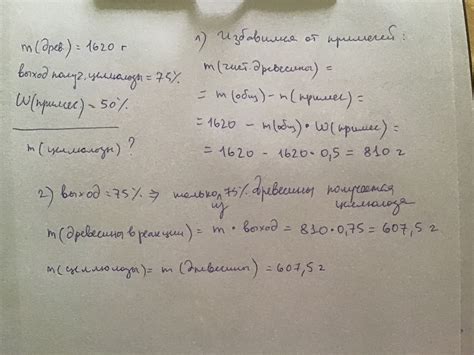 m(древ.) = 1620 г
выход получ. целлюлозы = 75%
W(примес) ~ 50%
m(целлюлозы)?
1) Избавимся от примесей:
m(чист. древесины) =
= m(общ) - m(примес) =
= 1620 - m(общ) · W(примес) =
= 1620 - 1620 · 0,5 = 810 г
2) выход = 75% ⇒ только из 75% древесины получается целлюлоза
m(древесины в реакции) = m · выход = 810 · 0,75 = 607,5 г
m(целлюлозы) = m(древесины) = 607,5 г